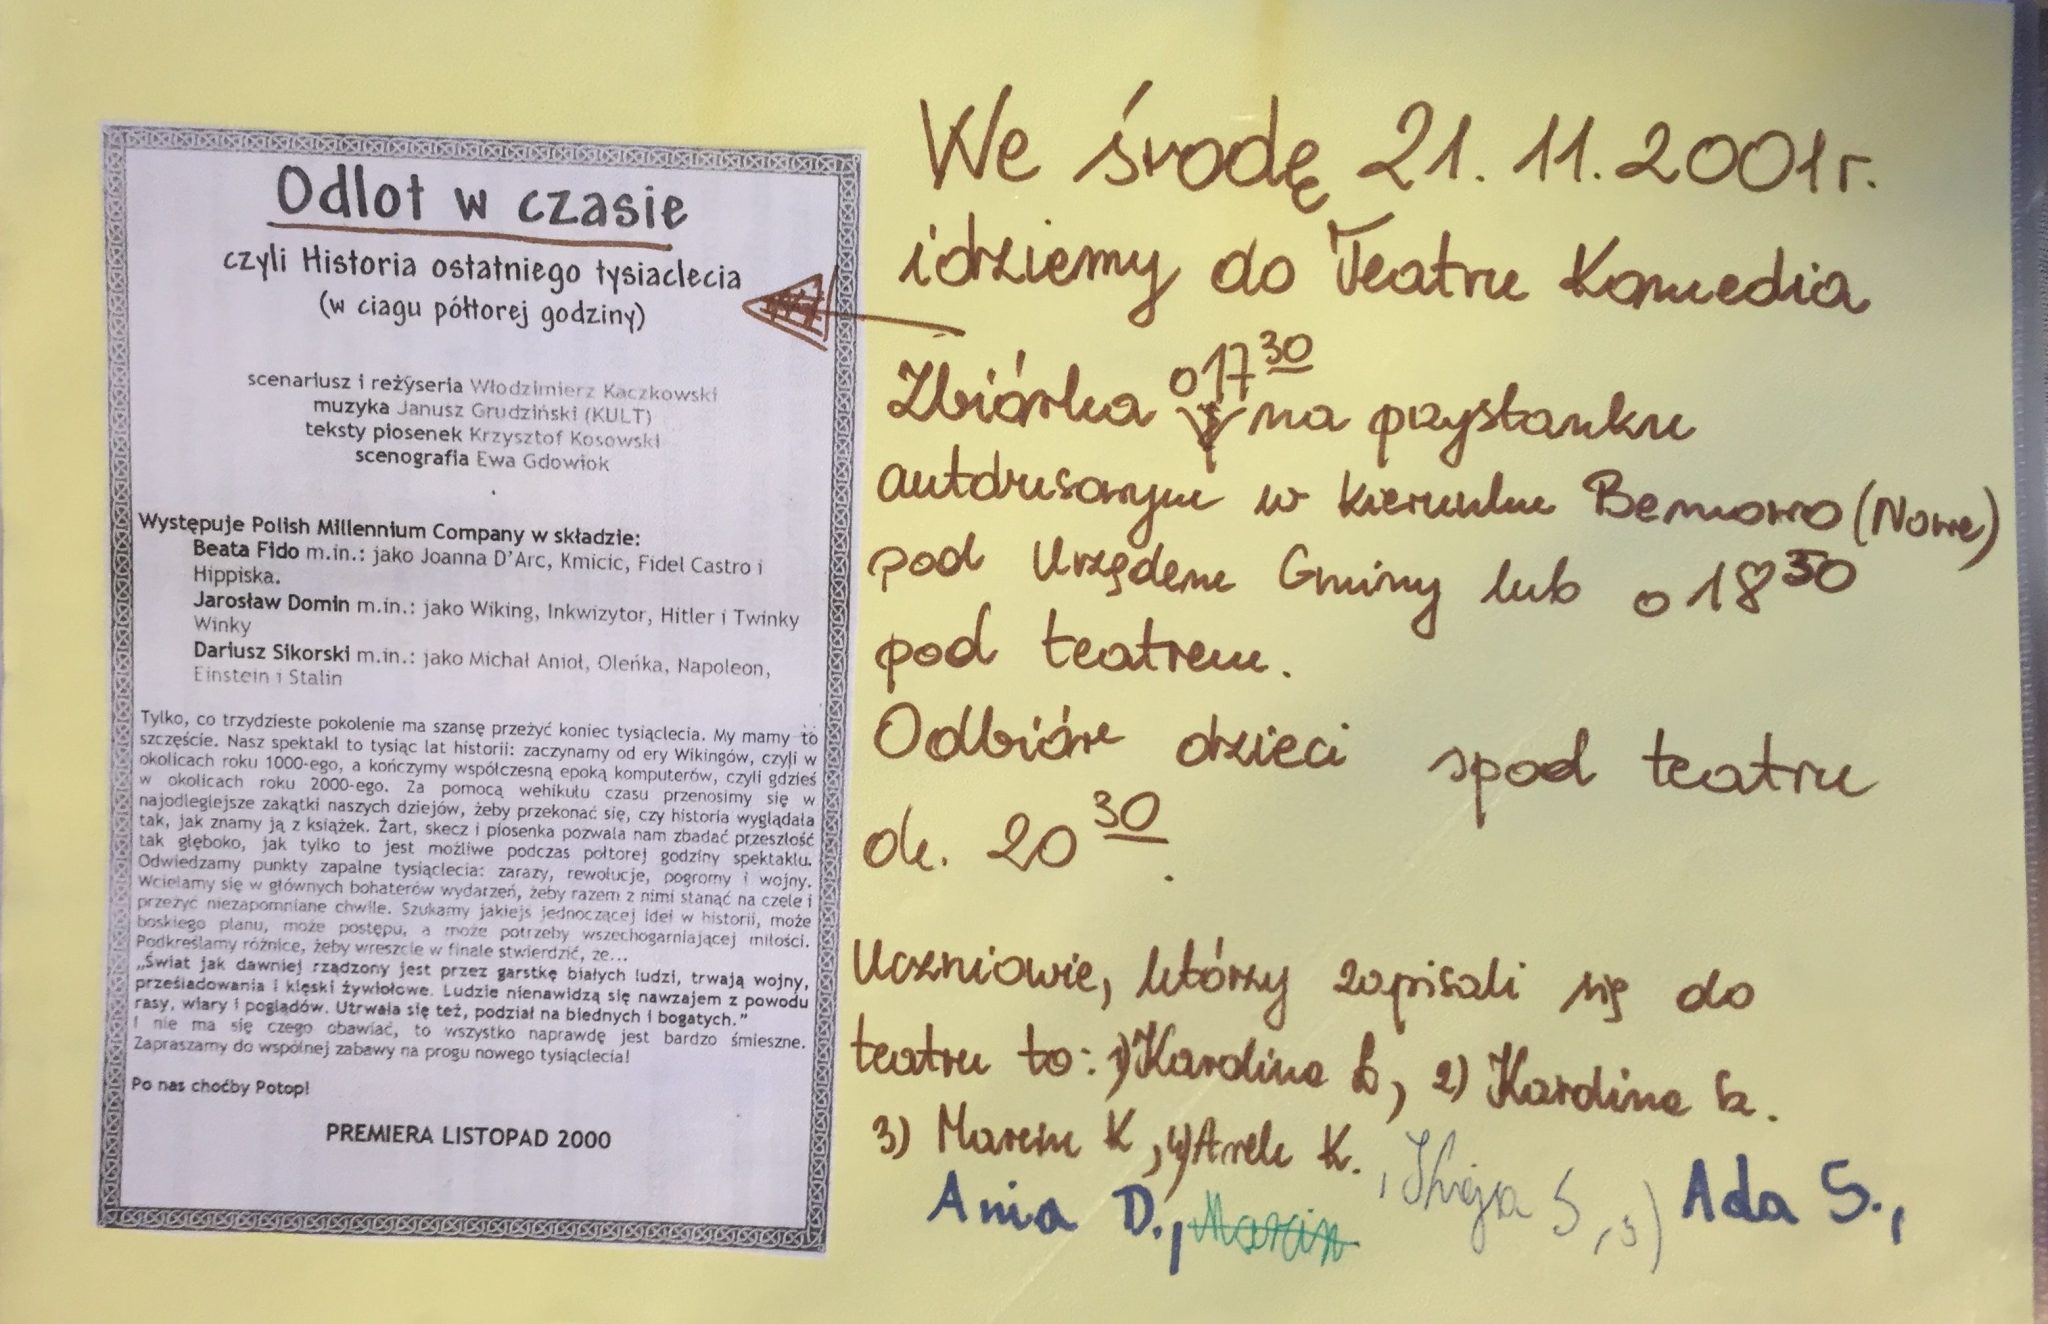 Odlot w czasie
czyli Historia ostatniego tysiaclecia
(w ciagu półtorej godziny)
scenariusz i reżyseria Włodzimierz Kaczkowski
muzyka Janusz Grudziński (KULT)
teksty piosenek Krzysztof Kosowski
scenografia Ewa Gdowiok
Występuje Polish Millennium Company w składzie:
Beata Fido m.in.: jako Joanna D'Arc, Kmicic, Fidel Castro i
Hippiska.
Jarosław Domin m.in.: jako Wiking, Inkwizytor, Hitler i Twinky
Winky
Dariusz Sikorski m.in.: jako Michał Anioł, Oleńka, Napoleon,
Einstein i Stalin
Tylko, co trzydzieste pokolenie ma szansę przeżyć koniec tysiąclecia. My mamy to
szczęście. Nasz spektakl to tysiąc lat historii: zaczynamy od ery Wikingów, czyli w
okolicach roku 1000-ego, a kończymy współczesną epoką komputerów, czyli gdzieś
w okolicach roku 2000-ego. Za pomocą wehikułu czasu przenosimy się w
najodleglejsze zakątki naszych dziejów, żeby przekonać się, czy historia wyglądała
tak, jak znamy ją z książek. Żart, skecz i piosenka pozwala nam zbadać przeszłość
tak głęboko, jak tylko to jest możliwe podczas półtorej godziny spektaklu.
Odwiedzamy punkty zapalne tysiąclecia: zarazy, rewolucje, pogromy i wojny.
Wcielamy się w głównych bohaterów wydarzeń, żeby razem z nimi stanąć na czele i
przeżyć niezapomniane chwile. Szukamy jakiejś jednoczącej idei w historii, może
boskiego planu, może postępu, a może potrzeby wszechogarniającej miłości.
Podkreślamy różnice, żeby wreszcie w finale stwierdzić, że...
„Świat jak dawniej rządzony jest przez garstkę białych ludzi, trwają wojny,
prześladowania i klęski żywiołowe. Ludzie nienawidzą się nawzajem z powodu
rasy, wiary i poglądów. Utrwala się też, podział na biednych i bogatych."
I nie ma się czego obawiać, to wszystko naprawdę jest bardzo śmieszne.
Zapraszamy do wspólnej zabawy na progu nowego tysiąclecia!
Po nas choćby Potop!
PREMIERA LISTOPAD 2000
We środę 21.11.2001r.
idziemy do Teatru Komedia
Zbiórka o 17 30 na przystanku
autobusowym w kierunku Bemowo (Nowe)
pod Urzędem Gminy lub o 18 30
pod teatrem.
Odbiór dzieci spod teatru
ok. 20 30.
Uczniowie, którzy zapisali się do
teatru to: 1) Karolina Ł, 2) Karolina
3) Marcin K, 4) Arek K.
Ania D., Marcin S, Ada S.,